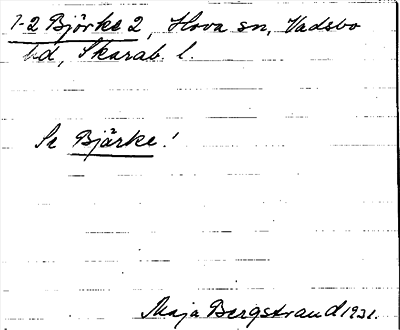 1-2 Björke 2, Hova sn, Vadsbo
hd, Skarab. l.
Se Bjärke!
Maja Bergstrand 1931.